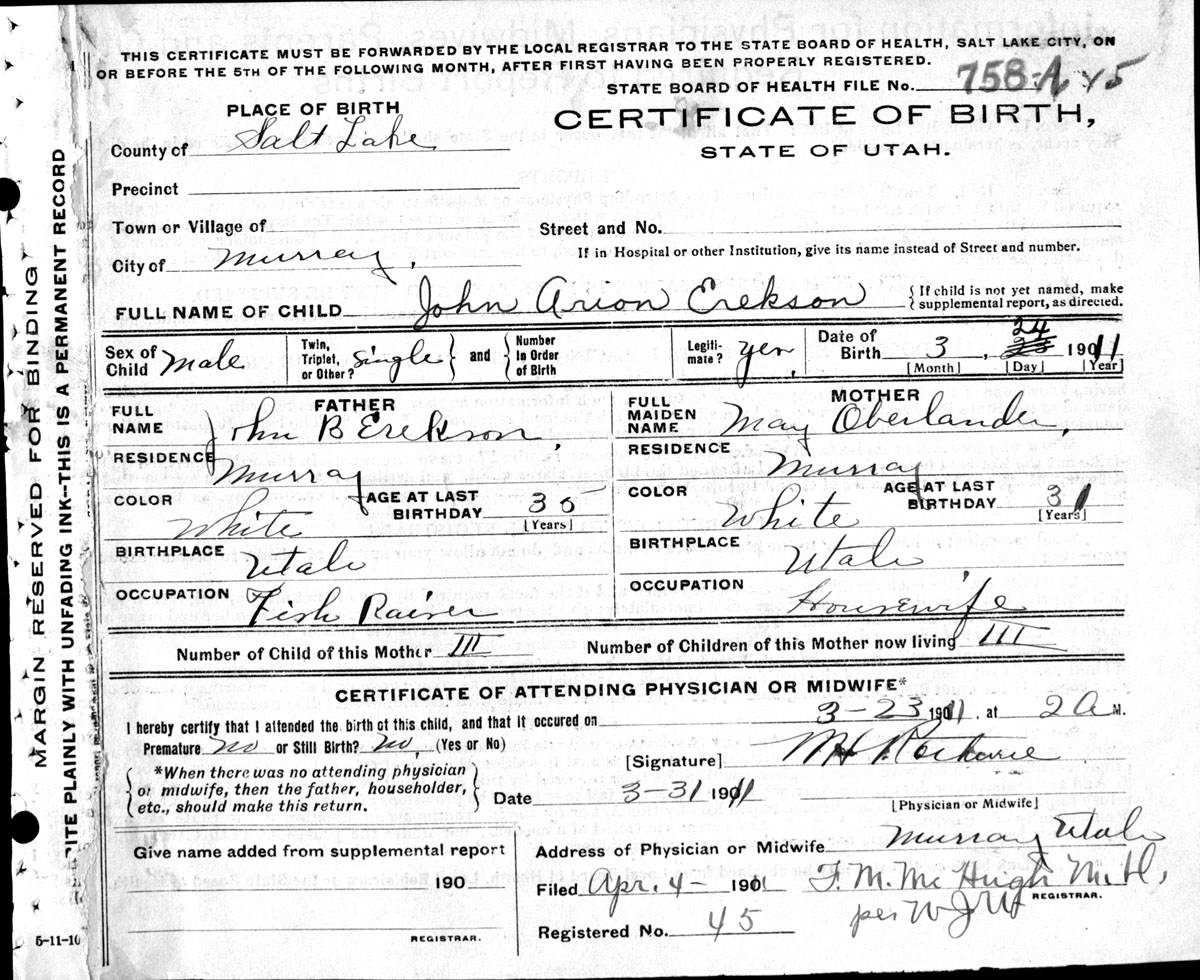 THIS CERTIFICATE MUST BE FORWARDED BY THE LOCAL REGISTRAR TO THE STATE BOARD OF HEALTH, SALT LAKE CITY, ON
OR BEFORE THE 5TH OF THE FOLLOWING MONTH, AFTER FIRST HAVING BEEN PROPERLY REGISTERED.
STATE BOARD OF HEALTH FILE No. 758-A 45
PLACE OF BIRTH
CERTIFICATE OF BIRTH,
STATE OF UTAH.
County of Salt Lake
Precinct
Town or Village of
Street and No.
City of Murray,
If in Hospital or other Institution, give its name instead of Street and number.
FULL NAME OF CHILD John Arion Erekson
{ If child is not yet named, make
supplemental report, as directed.
Sex of Child Male
Twin, Triplet, or Other? Single } and { Number in Order of Birth
Legitimate? yes,
Date of Birth 3, 24 23 1911
[Month] [Day] [Year]
FATHER
FULL NAME John B Erekson,
RESIDENCE Murray
COLOR White
AGE AT LAST BIRTHDAY 35
[Years]
BIRTHPLACE Utah
OCCUPATION Fish Raiser
MOTHER
FULL MAIDEN NAME May Oberlander,
RESIDENCE Murray
COLOR White
AGE AT LAST BIRTHDAY 31
[Years]
BIRTHPLACE Utah
OCCUPATION Housewife
Number of Child of this Mother III
Number of Children of this Mother now living III
CERTIFICATE OF ATTENDING PHYSICIAN OR MIDWIFE*
I hereby certify that I attended the birth of this child, and that it occured on 3-23 1911, at 2 A M.
Premature no or Still Birth? no, (Yes or No)
[Signature] M H
{ *When there was no attending physician
or midwife, then the father, householder,
etc., should make this return. }
Date 3-31 1911
[Physician or Midwife]
Give name added from supplemental report
190
REGISTRAR.
Address of Physician or Midwife Murray Utah
Filed Apr. 4- 1901 F. M. McHugh M.D.,
per W J W
REGISTRAR.
Registered No. 45
5-11-10
MARGIN RESERVED FOR BINDING
RITE PLAINLY WITH UNFADING INK--THIS IS A PERMANENT RECORD